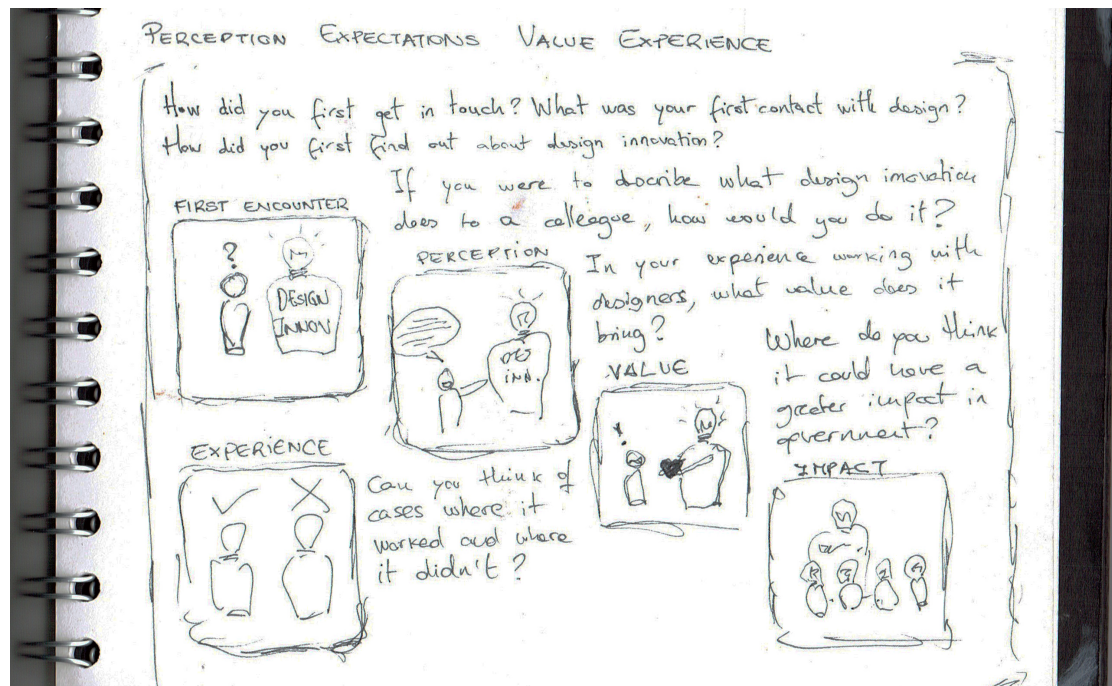 PERCEPTION EXPECTATIONS VALUE EXPERIENCE
How did you first get in touch? What was your first contact with design?
How did you first find out about design innovation?
If you were to describe what design innovation
does to a colleague, how would you do it?
FIRST ENCOUNTER
?
DESIGN
INNOV
PERCEPTION
DES
INN.
In your experience working with
designers, what value does it
bring?
VALUE
Where do you think
it could have a
greater impact in
government?
IMPACT
EXPERIENCE
Can you think of
cases where it
worked and where
it didn't?